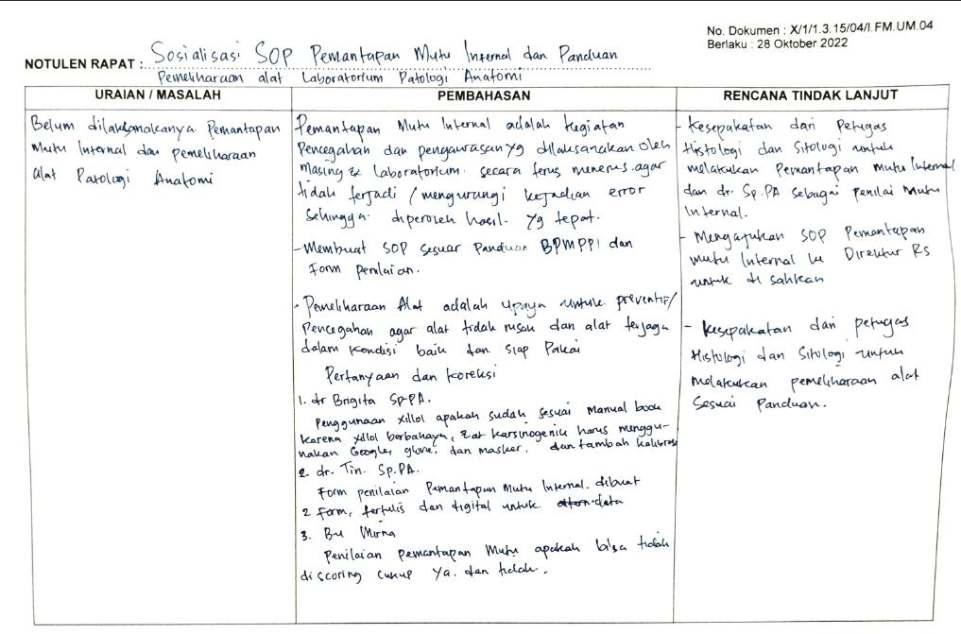 No. Dokumen : X/1/1.3.15/04/I.FM.UM.04
Berlaku : 28 Oktober 2022
NOTULEN RAPAT : Sosialisasi SOP Pemantapan Mutu Internal dan Panduan
Pemeliharaan alat Laboratorium Patologi Anatomi
URAIAN / MASALAH
Belum dilaksanakanya Pemantapan
Mutu Internal dan pemeliharaan
alat Patologi Anatomi
PEMBAHASAN
Pemantapan Mutu Internal adalah kegiatan
Pencegahan dan pengawasan yg dilaksanakan oleh
Masing2 Laboratorium secara terus menerus agar
tidak terjadi / mengurangi kejadian error
Sehingga diperoleh hasil yg tepat.
- Membuat SOP sesuai Panduan BPMPPI dan
Form penilaian.
- Pemeliharaan Alat adalah upaya untuk preventif/
Pencegahan agar alat tidak rusak dan alat terjaga
dalam kondisi baik dan siap Pakai
Pertanyaan dan Koreksi
1. dr Brigita Sp.PA.
Penggunaan xillol apakah sudah sesuai Manual book
karena xillol berbahaya, zat karsinogenik harus menggu-
nakan Google, glove, dan masker. dan tambah kalibrasi
2. dr. Tin. Sp.PA.
Form penilaian Pemantapan Mutu Internal. dibuat
2 form, tertulis dan digital untuk data
3. Bu Mirna
Penilaian pemantapan Mutu apakah bisa tidak
di scoring cukup Ya. dan tidak.
RENCANA TINDAK LANJUT
- Kesepakatan dari Petugas
Histologi dan Sitologi untuk
melakukan Pemantapan mutu Internal
dan dr. Sp.PA sebagai penilai Mutu
Internal.
- Mengajukan SOP Pemantapan
mutu Internal ke Direktur RS
untuk di sahkan
- Kesepakatan dari petugas
Histologi dan Sitologi untuk
melakukan pemeliharaan alat
Sesuai Panduan.